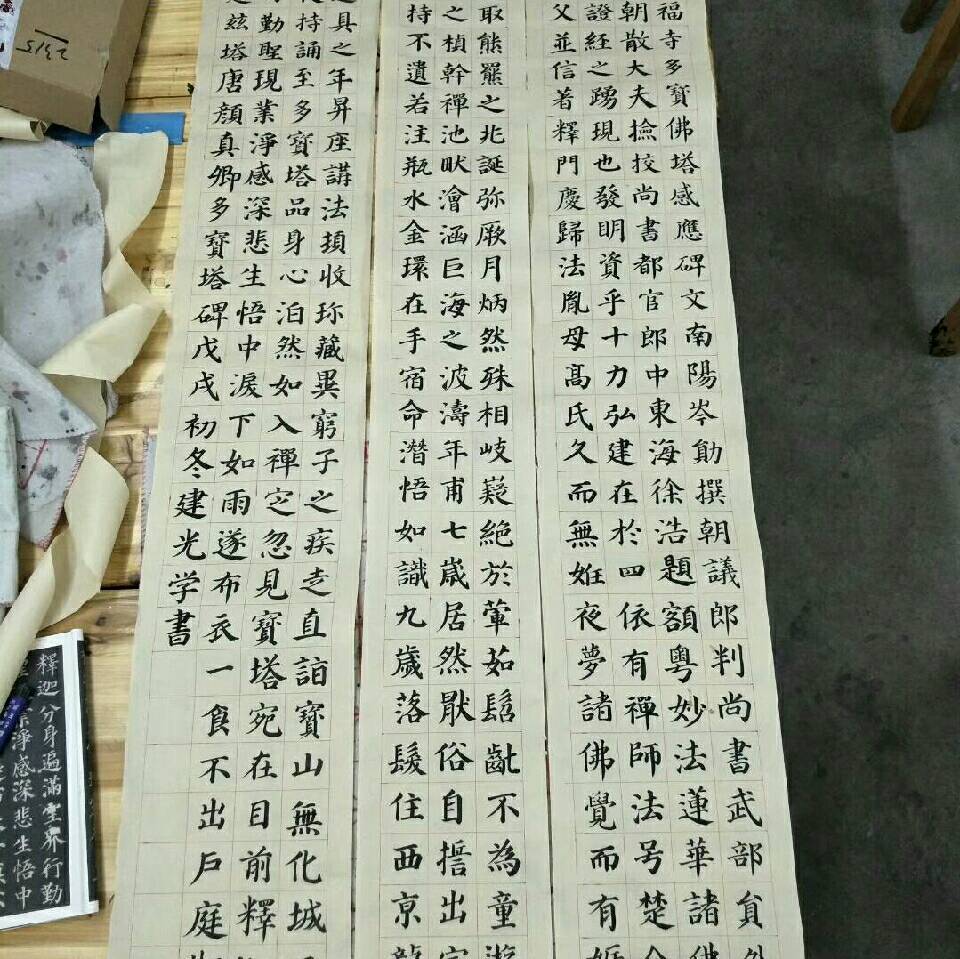 福寺多寶佛塔感應碑文南陽岑勛撰朝議郎判尚書武部員外
朝散大夫撿挍尚書都官郎中東海徐浩題額粵妙法蓮華諸佛
證經之踴現也發明資乎十力弘建在於四依有禪師法号楚金
父並信著釋門慶歸法胤母高氏久而無姙夜夢諸佛覺而有娠
取熊羆之兆誕弥厥月炳然殊相岐嶷絕於葷茹髫齓不為童遊
之楨幹禪池畎澮涵巨海之波濤年甫七歲居然猒俗自誓出家
持不遺若注瓶水金環在手宿命潛悟如識九歲落髮住西京龍
具之年昇座講法頓收珎藏異窮子之疾走直詣寶山無化城
持誦至多寶塔品身心泊然如入禪定忽見寶塔宛在目前釋
勤聖現業淨感深悲生悟中淚下如雨遂布衣一食不出戶庭
茲塔唐顏真卿多寶塔碑戊戌初冬建光学書
釋迦分身遍滿空界行勤
業淨感深悲生悟中